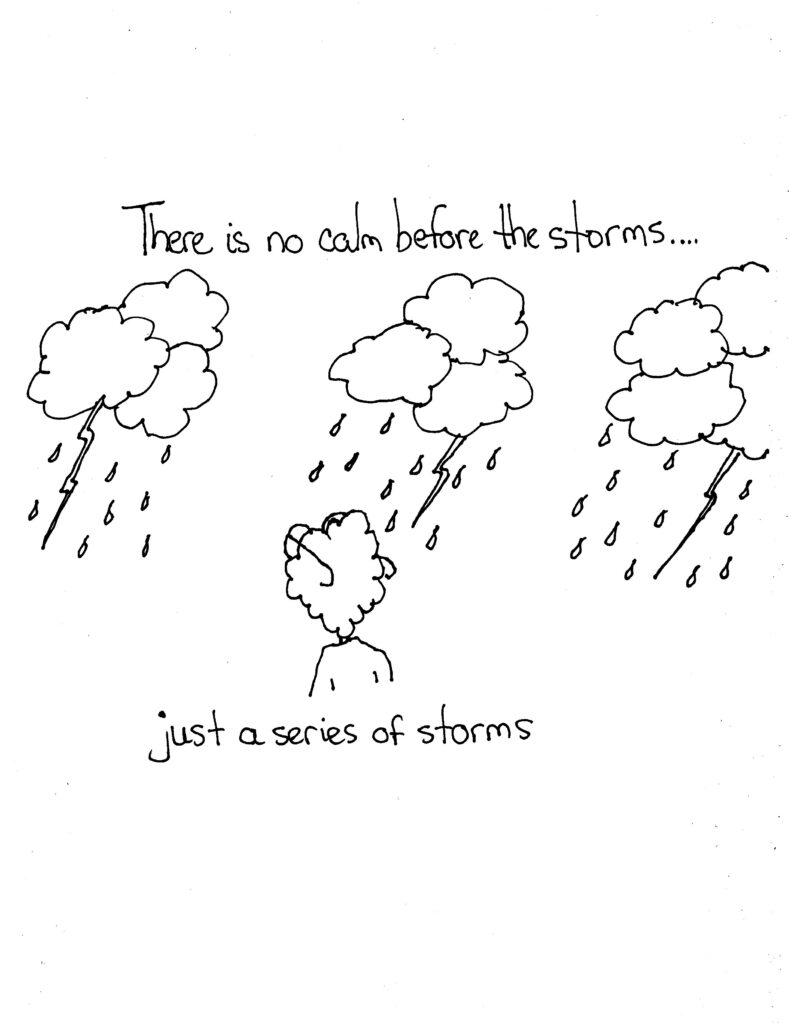 There is no calm before the storms....
just a series of storms